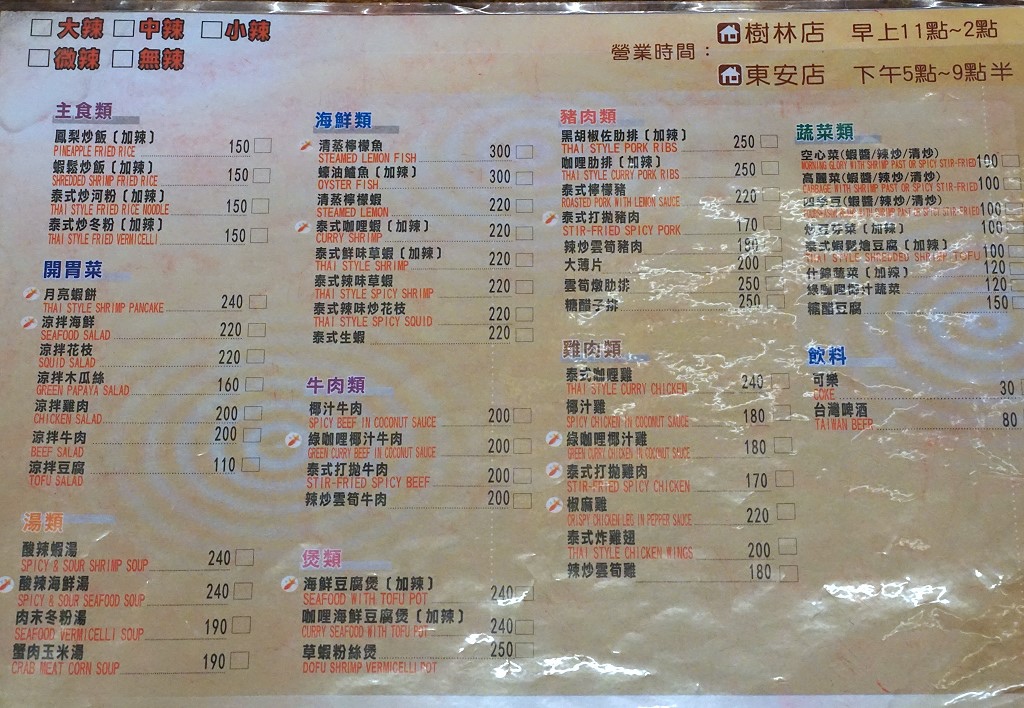 大辣 中辣 小辣
微辣 無辣
營業時間：
樹林店 早上11點~2點
東安店 下午5點~9點半
主食類
鳳梨炒飯〔加辣〕
PINEAPPLE FRIED RICE 150
蝦鬆炒飯〔加辣〕
SHREDDED SHRIMP FRIED RICE 150
泰式炒河粉〔加辣〕
THAI STYLE FRIED RICE NOODLE 150
泰式炒冬粉〔加辣〕
THAI STYLE FRIED VERMICELLI 150
開胃菜
月亮蝦餅
THAI STYLE SHRIMP PANCAKE 240
涼拌海鮮
SEAFOOD SALAD 220
涼拌花枝
SQUID SALAD 220
涼拌木瓜絲
GREEN PAPAYA SALAD 160
涼拌雞肉
CHICKEN SALAD 200
涼拌牛肉 200
BEEF SALAD
涼拌豆腐 110
TOFU SALAD
湯類
酸辣蝦湯
SPICY & SOUR SHRIMP SOUP 240
酸辣海鮮湯
SPICY & SOUR SEAFOOD SOUP 240
肉末冬粉湯
SEAFOOD VERMICELLI SOUP 190
蟹肉玉米湯
CRAB MEAT CORN SOUP 190
海鮮類
清蒸檸檬魚
STEAMED LEMON FISH 300
蠔油鱸魚〔加辣〕
OYSTER FISH 300
清蒸檸檬蝦
STEAMED LEMON 220
泰式咖哩蝦〔加辣〕
CURRY SHRIMP 220
泰式鮮味草蝦〔加辣〕
THAI STYLE SHRIMP 220
泰式辣味草蝦
THAI STYLE SPICY SHRIMP 220
泰式辣味炒花枝
THAI STYLE SPICY SQUID 220
泰式生蝦 220
牛肉類
椰汁牛肉
SPICY BEEF IN COCONUT SAUCE 200
綠咖哩椰汁牛肉
GREEN CURRY BEEF IN COCONUT SAUCE 200
泰式打拋牛肉
STIR-FRIED SPICY BEEF 200
辣炒雲筍牛肉 200
煲類
海鮮豆腐煲〔加辣〕
SEAFOOD WITH TOFU POT 240
咖哩海鮮豆腐煲〔加辣〕
CURRY SEAFOOD WITH TOFU POT 240
草蝦粉絲煲 250
DOFU SHRIMP VERMICELLI POT
豬肉類
黑胡椒佐肋排〔加辣〕
THAI STYLE PORK RIBS 250
咖哩肋排〔加辣〕
THAI STYLE CURRY PORK RIBS 250
泰式檸檬豬
ROASTED PORK WITH LEMON SAUCE 220
泰式打拋豬肉
STIR-FRIED SPICY PORK 170
辣炒雲筍豬肉 180
大薄片 200
雲筍燉肋排 250
糖醋子排 250
雞肉類
泰式咖哩雞
THAI STYLE CURRY CHICKEN 240
椰汁雞
SPICY CHICKEN IN COCONUT SAUCE 180
綠咖哩椰汁雞
GREEN CURRY CHICKEN IN COCONUT SAUCE 180
泰式打拋雞肉
STIR-FRIED SPICY CHICKEN 170
椒麻雞
CRISPY CHICKEN LEG IN PEPPER SAUCE 220
泰式炸雞翅
THAI STYLE CHICKEN WINGS 200
辣炒雲筍雞 180
蔬菜類
空心菜(蝦醬/辣炒/清炒)
MORNING GLORY WITH SHRIMP PAST OR SPICY STIR-FRIED 100
高麗菜(蝦醬/辣炒/清炒)
CABBAGE WITH SHRIMP PAST OR SPICY STIR-FRIED 100
四季豆(蝦醬/辣炒/清炒)
WITH SHRIMP PAST OR SPICY STIR-FRIED 100
炒豆芽菜〔加辣〕 100
泰式蝦鬆燴豆腐〔加辣〕
THAI STYLE SHREDDED SHRIMP TOFU 100
什錦蔬菜〔加辣〕 120
綠咖哩椰汁蔬菜 120
糖醋豆腐 150
飲料
可樂
COKE 30
台灣啤酒
TAIWAN BEER 80